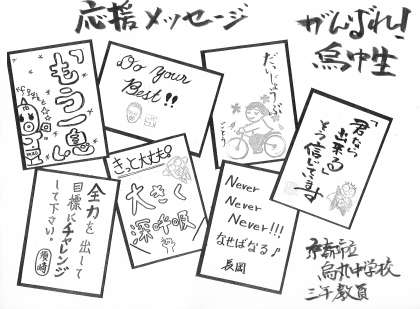 応援メッセージ
がんばれ！
烏中生
「もう一息」
Do Your
Best!!
だいじょうぶ
君なら
出来る」
そう信じてます
きっと大丈夫
大きく
深呼吸
全力を出して
目標にチャレンジ
して下さい。
Never
Never
Never!!!
なせばなる♪
長岡
京都市立
烏丸中学校
三年教員